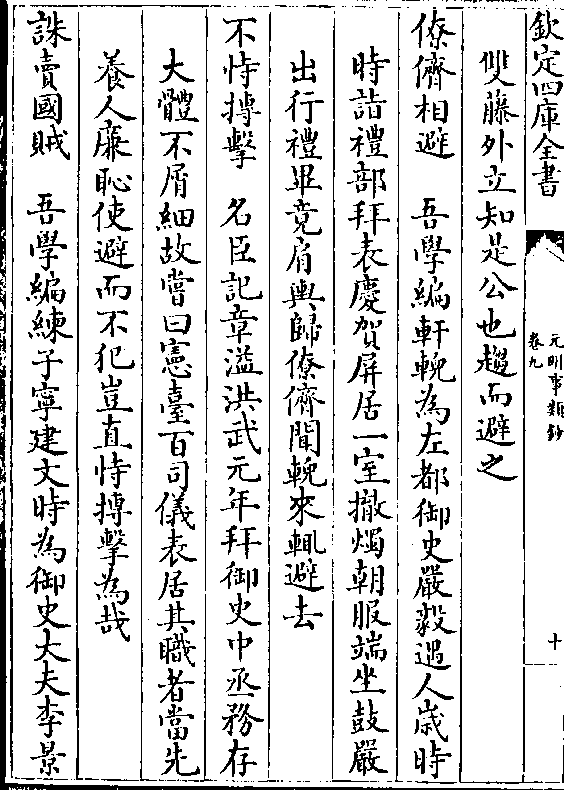 欽定四庫全書
元明事類鈔
卷九
十
雙藤外立知是公也趨而避之
僚儕相避　吾學編軒輗為左都御史嚴毅遇人歲時
時詣禮部拜表慶賀屏居一室撤燭朝服端坐鼓嚴
出行禮畢竟肩輿歸僚儕聞輗來輒避去
不恃搏擊　名臣記章溢洪武元年拜御史中丞務存
大體不屑細故嘗曰憲臺百司儀表居其職者當先
養人廉恥使避而不犯豈直恃搏擊為哉
誅賣國賊　吾學編練子寧建文時為御史大夫李景